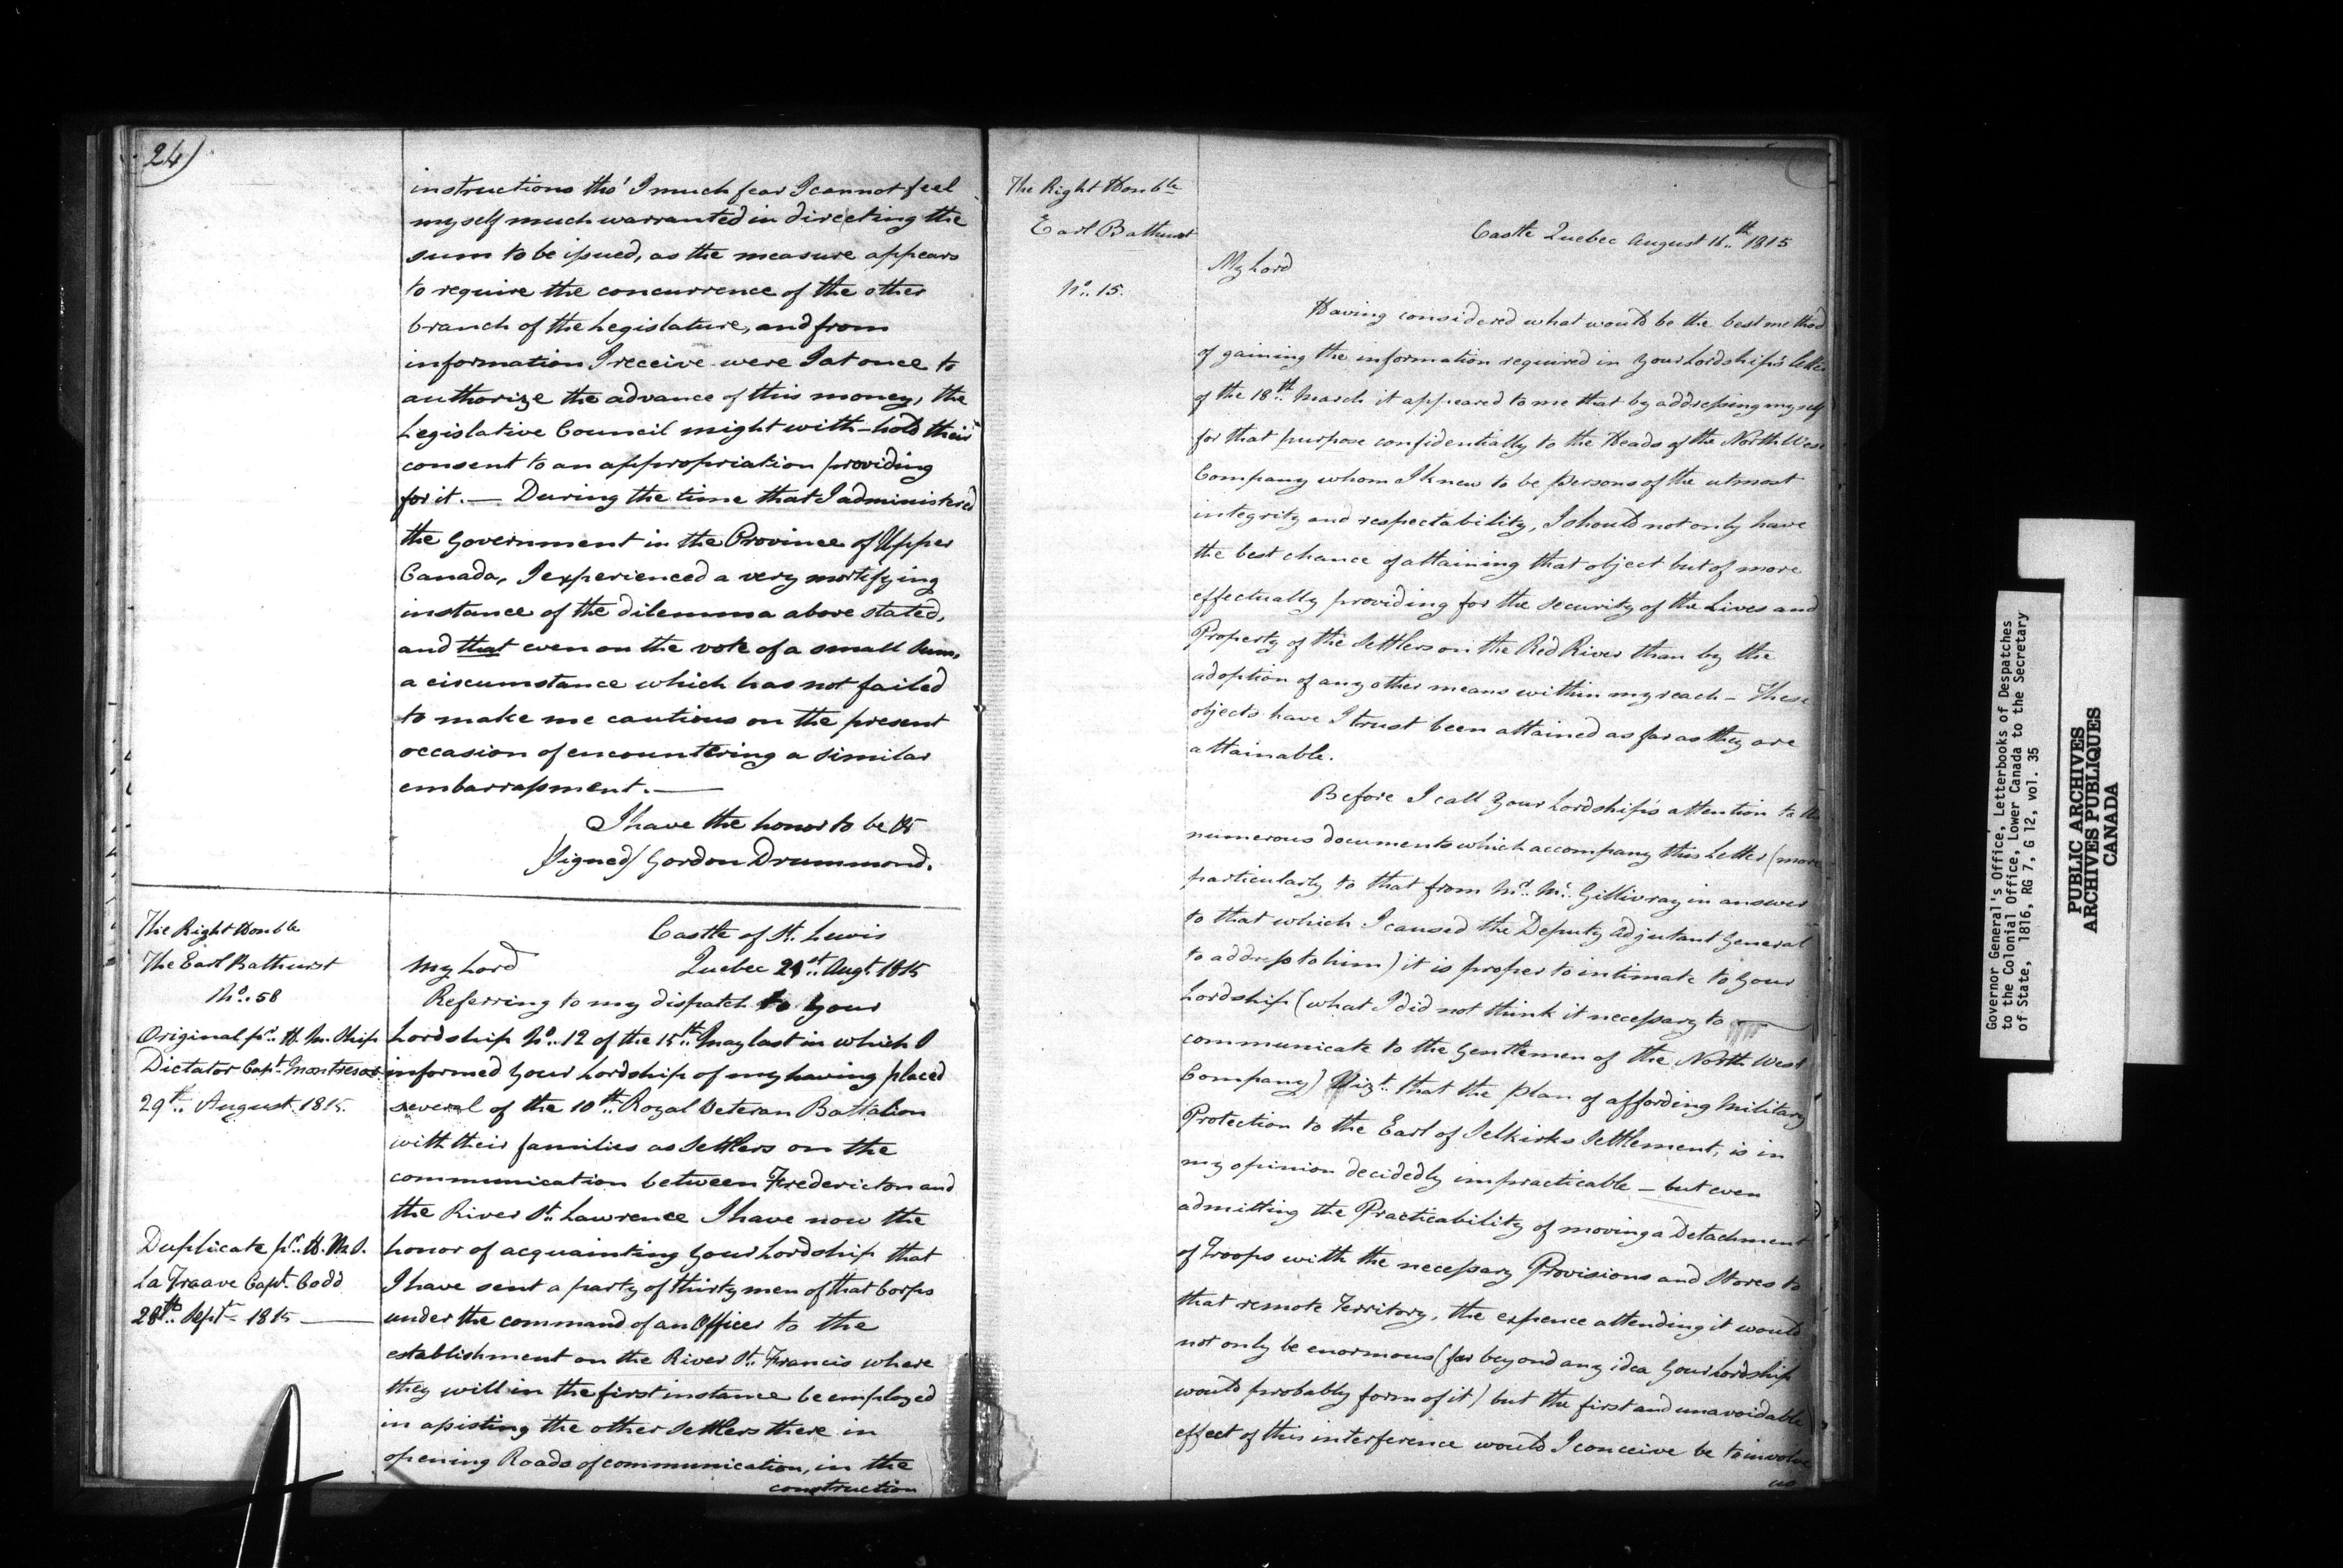 24)
instructions tho' I much fear I cannot feel
myself much warranted in directing the
sum to be issued, as the measure appears
to require the concurrence of the other
branch of the Legislature, and from
information I receive were I at once to
authorize the advance of this money, the
Legislative Council might with-hold their
consent to an appropriation providing
for it. — During the time that I administered
the Government in the Province of Upper
Canada, I experienced a very mortifying
instance of the dilemma above stated,
and that even on the vote of a small sum,
a circumstance which has not failed
to make me cautious on the present
occasion of encountering a similar
embarrassment. —
I have the honor to be &c
/signed/ Gordon Drummond.
The Right Honble
The Earl Bathurst
No. 58
Original pr. H. M. Ship
Dictator Capt. Montresor
29th. August 1815.
Duplicate pr. H. M. S.
La Traave Capt. Codd
28th. Sept. 1815 —
Castle of St. Lewis
My Lord Quebec 21st. Augt. 1815
Referring to my dispatch to Your
Lordship No. 12 of the 15th. May last in which I
informed Your Lordship of my having placed
several of the 10th. Royal Veteran Battalion
with their families as Settlers on the
communication between Fredericton and
the River St. Lawrence I have now the
honor of acquainting Your Lordship that
I have sent a party of thirty men of that Corps
under the command of an Officer to the
establishment on the River St. Francis where
they will in the first instance be employed
in assisting the other Settlers there in
opening Roads of communication, in the
construction
The Right Honble
Earl Bathurst
No. 15.
Castle Quebec August 16th. 1815
My Lord
Having considered what would be the best method
of gaining the information required in Your Lordship's letter
of the 18th. March it appeared to me that by addressing myself
for that purpose confidentially to the Heads of the North West
Company whom I knew to be persons of the utmost
integrity and respectability, I should not only have
the best chance of attaining that object but of more
effectually providing for the security of the Lives and
Property of the Settlers on the Red River than by the
adoption of any other means within my reach – These
objects have I trust been attained as far as they are
attainable.
Before I call Your Lordship's attention to the
numerous documents which accompany this Letter (more
particularly to that from Mr. Mc. Gillivray in answer
to that which I caused the Deputy Adjutant General
to address to him) it is proper to intimate to Your
Lordship (what I did not think it necessary to
communicate to the Gentlemen of the North West
Company) Vizt. that the plan of affording Military
Protection to the Earl of Selkirks Settlement, is in
my opinion decidedly impracticable – but even
admitting the Practicability of moving a Detachment
of Troops with the necessary Provisions and Stores to
that remote Territory, the expence attending it would
not only be enormous (far beyond any idea Your Lordship
would probably form of it) but the first and unavoidable
effect of this interference would I conceive be to involve
us
Governor General's Office, Letterbooks of Despatches
to the Colonial Office, Lower Canada to the Secretary
of State, 1816, RG 7, G 12, vol. 35
PUBLIC ARCHIVES
ARCHIVES PUBLIQUES
CANADA